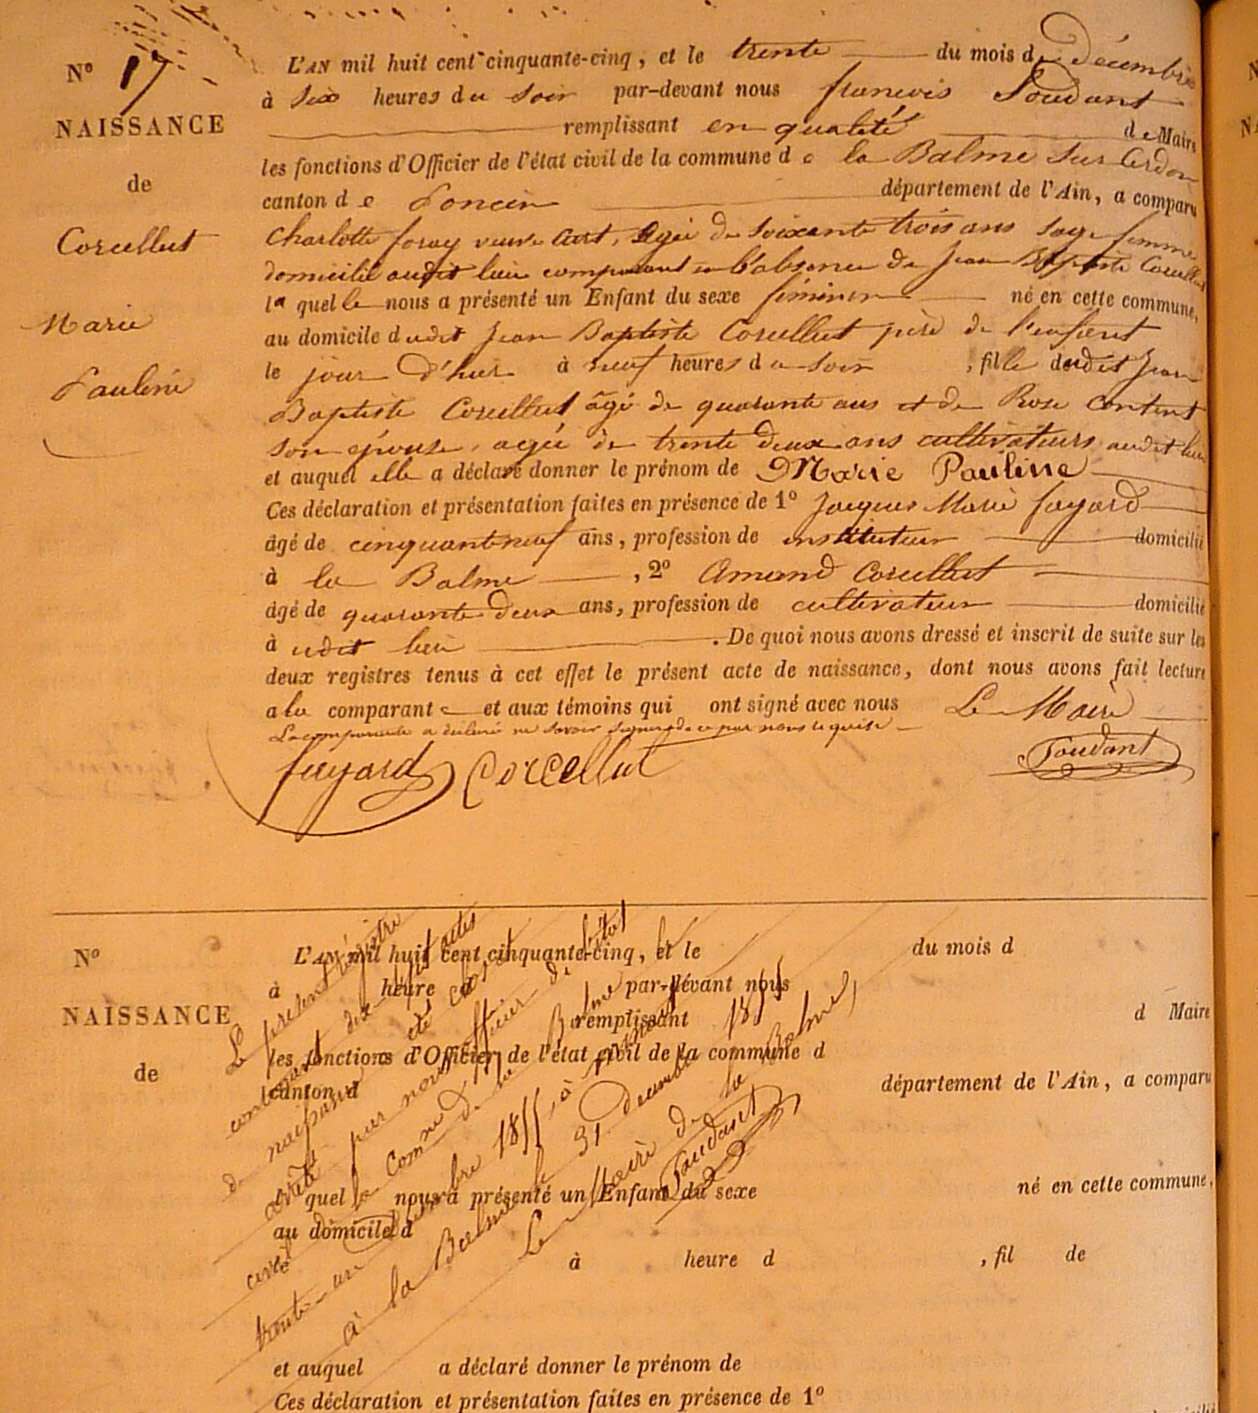 N° 17
NAISSANCE
de
Corcellut
Marie
Pauline
L'AN mil huit cent cinquante-cinq, et le trente du mois de Décembre
à six heures du soir par-devant nous françois Soudant
remplissant en qualité de Maire
les fonctions d'Officier de l'état civil de la commune de la Balme sur Cerdon
canton de Poncin département de l'Ain, a comparu
Charlotte foray veuve Curt, agée de soixante trois ans sage femme
domicilié audit lieu comparant en l'absence de Jean Baptiste Corcellut
laquelle nous a présenté un Enfant du sexe féminin né en cette commune,
au domicile dudit Jean Baptiste Corcellut père de l'enfant
le jour d'hier à neuf heures du soir, fille dudit Jean
Baptiste Corcellut âgé de quarante ans et de Rose Content
son épouse, agée de trente deux ans cultivateurs audit lieu
et auquel elle a déclaré donner le prénom de Marie Pauline
Ces déclaration et présentation faites en présence de 1° Jacques Marie fayard
âgé de cinquante neuf ans, profession de instituteur domicilié
à la Balme, 2° Amand Corcellut
âgé de quarante deux ans, profession de cultivateur domicilié
à udit lieu. De quoi nous avons dressé et inscrit de suite sur les
deux registres tenus à cet effet le présent acte de naissance, dont nous avons fait lecture
a la comparante et aux témoins qui ont signé avec nous Le Maire
La comparante a déclaré ne savoir signer de ce par nous requise
fayard Corcellut Soudant
N°
NAISSANCE
de
L'AN mil huit cent cinquante-cinq, et le du mois d
à heure d par-devant nous
remplissant d Maire
les fonctions d'Officier de l'état civil de la commune d
canton d département de l'Ain, a comparu
quel nous a présenté un Enfant du sexe né en cette commune,
au domicile d
à heure d, fil de
et auquel a déclaré donner le prénom de
Ces déclaration et présentation faites en présence de 1°
Le présent registre
contenant dix sept actes
de naissance a été clos et
arrêté par nous officier de l'état
civil de la Comne de la Balme
trente un Décembre 1855, à
à la Balme le 31 décembre 1855
Le Maire de la Balme,
Soudant